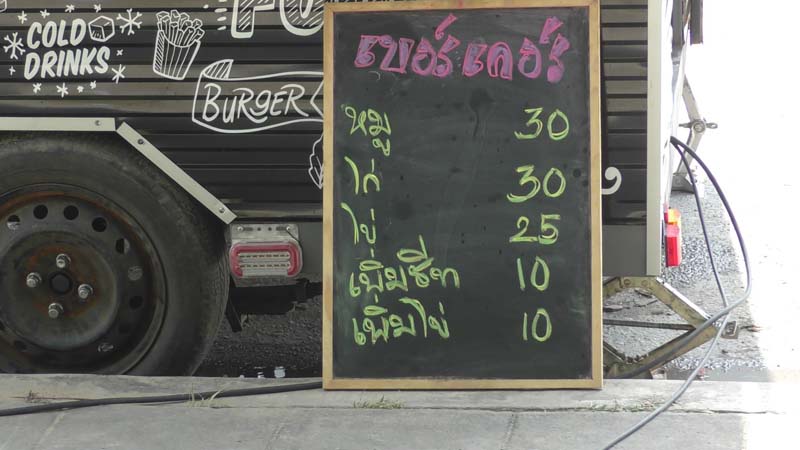 COLD
DRINKS
BURGER
เบอร์เกอร์
หมู 30
ไก่ 30
ไข่ 25
เพิ่มชีท 10
เพิ่มไข่ 10